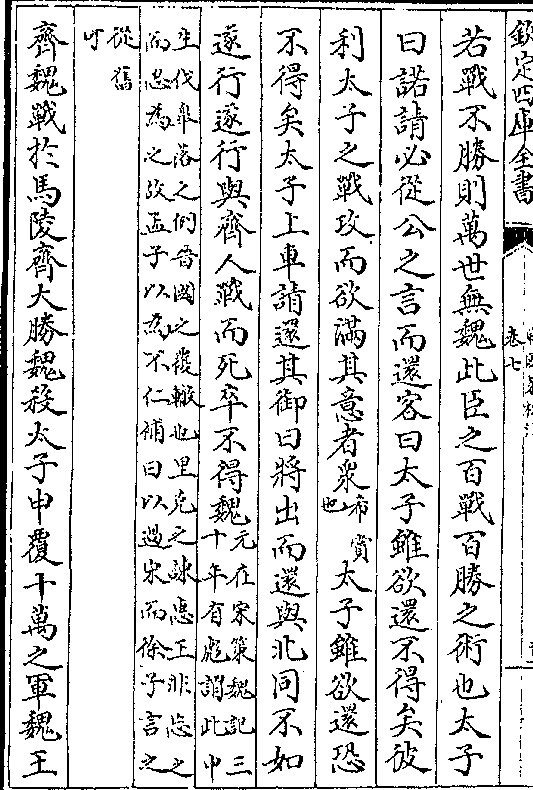 欽定四庫全書
卷七
若戰不勝則萬世無魏此臣之百戰百勝之術也太子
曰諾請必從公之言而還客曰太子雖欲還不得矣彼
利太子之戰攻而欲滿其意者衆希賞也太子雖欲還恐
不得矣太子上車請還其御曰將出而還與北同不如
遂行遂行與齊人戰而死卒不得魏元在宋策魏記三十年有彪謂此申
生伐臯落之例晉國之覆轍也里克之諫惠王非忘之
而忍為之故孟子以為不仁補曰以過宋而徐子言之
從舊
齊魏戰於馬陵齊大勝魏殺太子申覆十萬之軍魏王